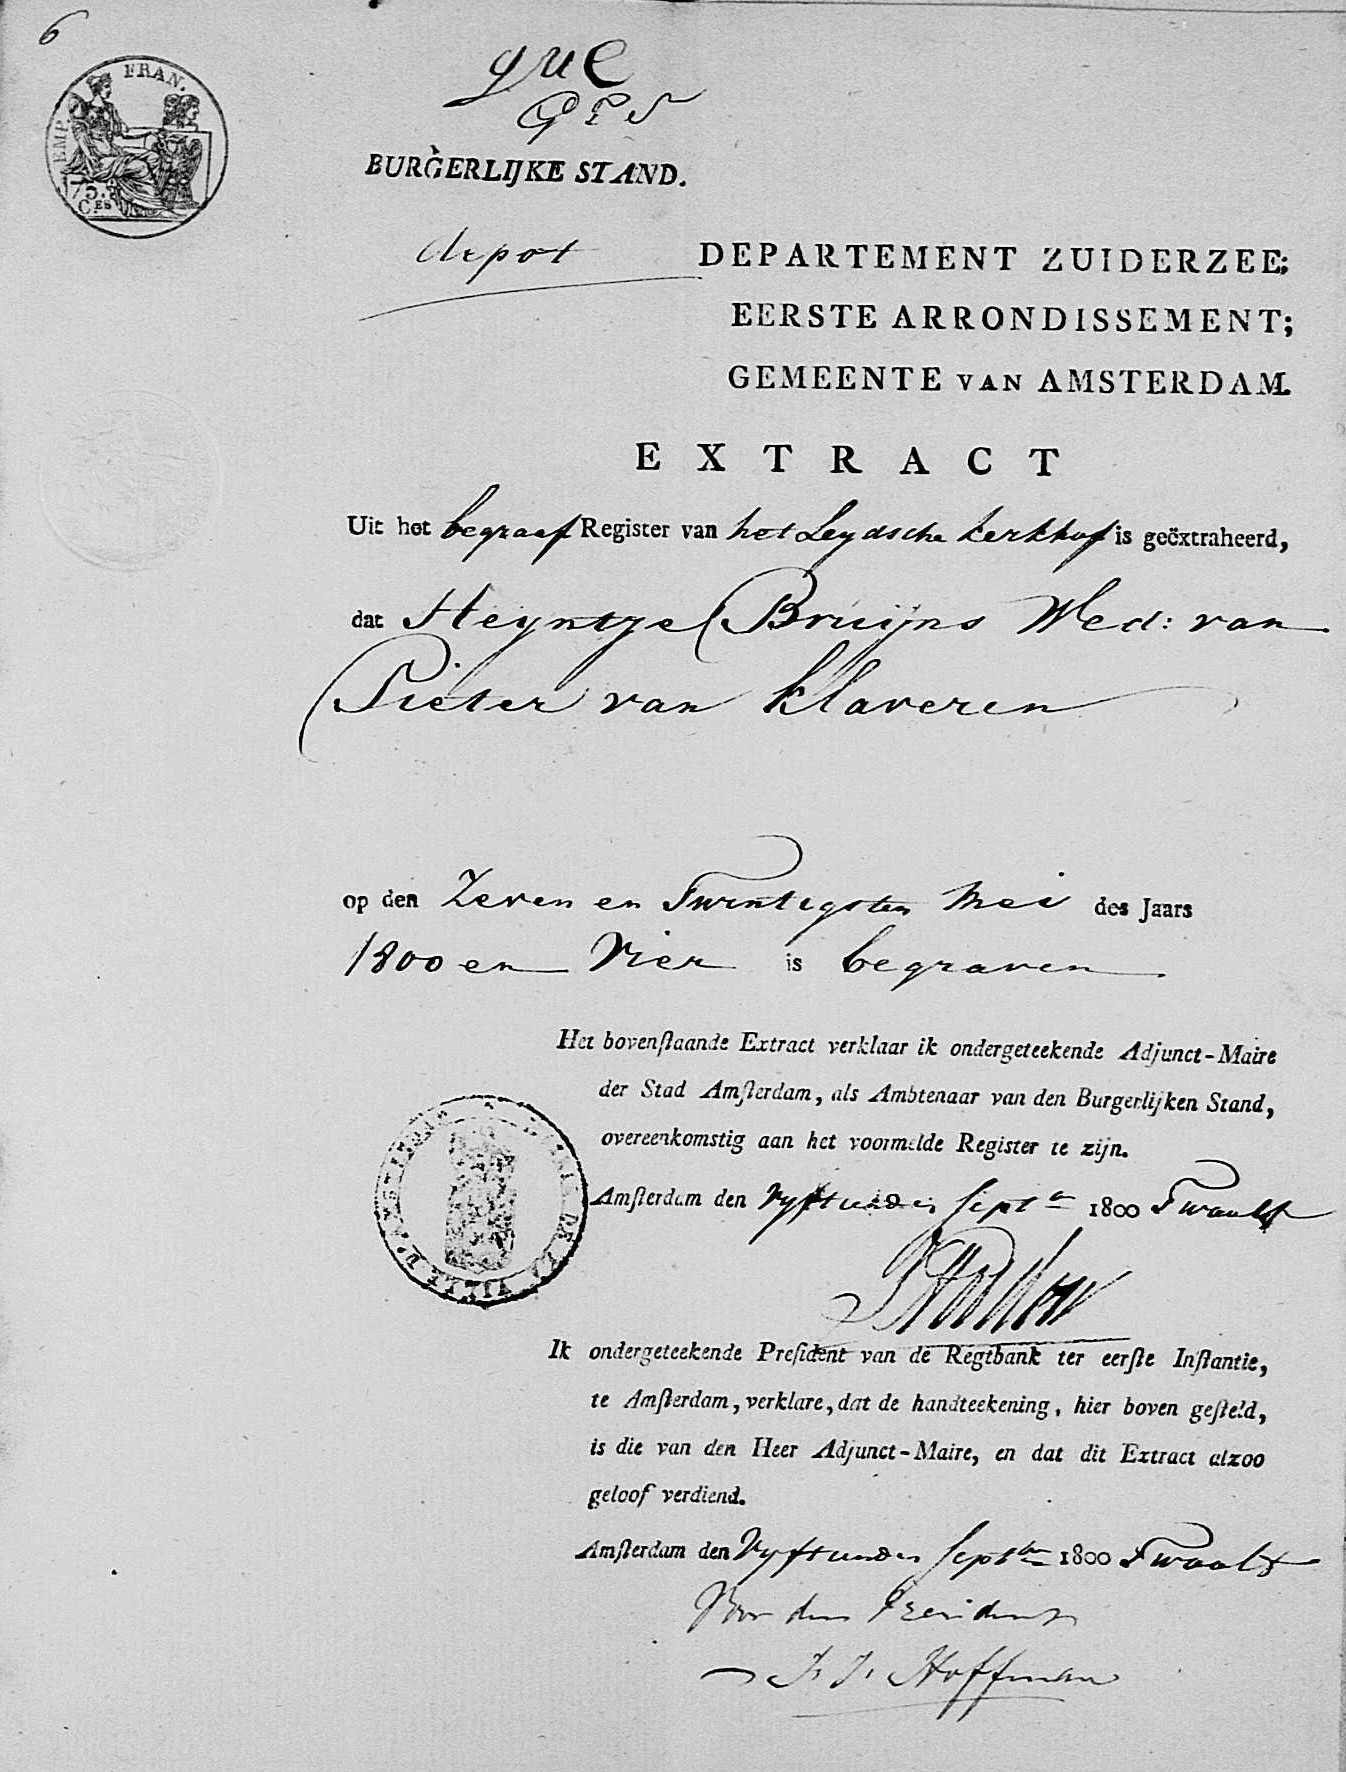 6
EMP. FRAN.
75.
C.ES
que
GES
BURGERLIJKE STAND.
depot
DEPARTEMENT ZUIDERZEE;
EERSTE ARRONDISSEMENT;
GEMEENTE VAN AMSTERDAM.
EXTRACT
Uit het begraaf Register van het Leydsche kerkhof is geëxtraheerd,
dat Heyntje Bruijns Wed: van
Pieter van Klaveren
op den Zeven en Twintigsten Mei des Jaars
1800 en Vier is begraven
Het bovenstaande Extract verklaar ik ondergeteekende Adjunct-Maire
der Stad Amsterdam, als Ambtenaar van den Burgerlijken Stand,
overeenkomstig aan het voormelde Register te zijn.
Amsterdam den Vyftienden Septr 1800 Twaalf
Ik ondergeteekende President van de Regtbank ter eerste Instantie,
te Amsterdam, verklare, dat de handteekening, hier boven gesteld,
is die van den Heer Adjunct-Maire, en dat dit Extract alzoo
geloof verdiend.
Amsterdam den Vyftienden Septbr 1800 Twaalf
Voor den President
J. J. Hoffman